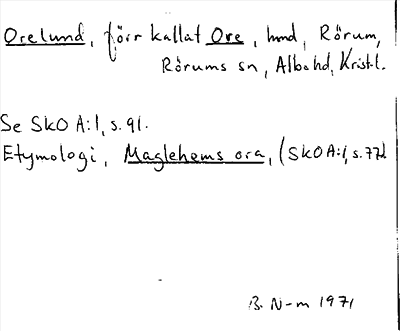 Orelund, förr kallat Ore, hmd, Rörum,
Rörums sn, Albo hd, Krist.l.
Se SkO A:1, s. 91.
Etymologi, Maglehems ora, (SkO A:1, s. 77).
B. N-m 1971